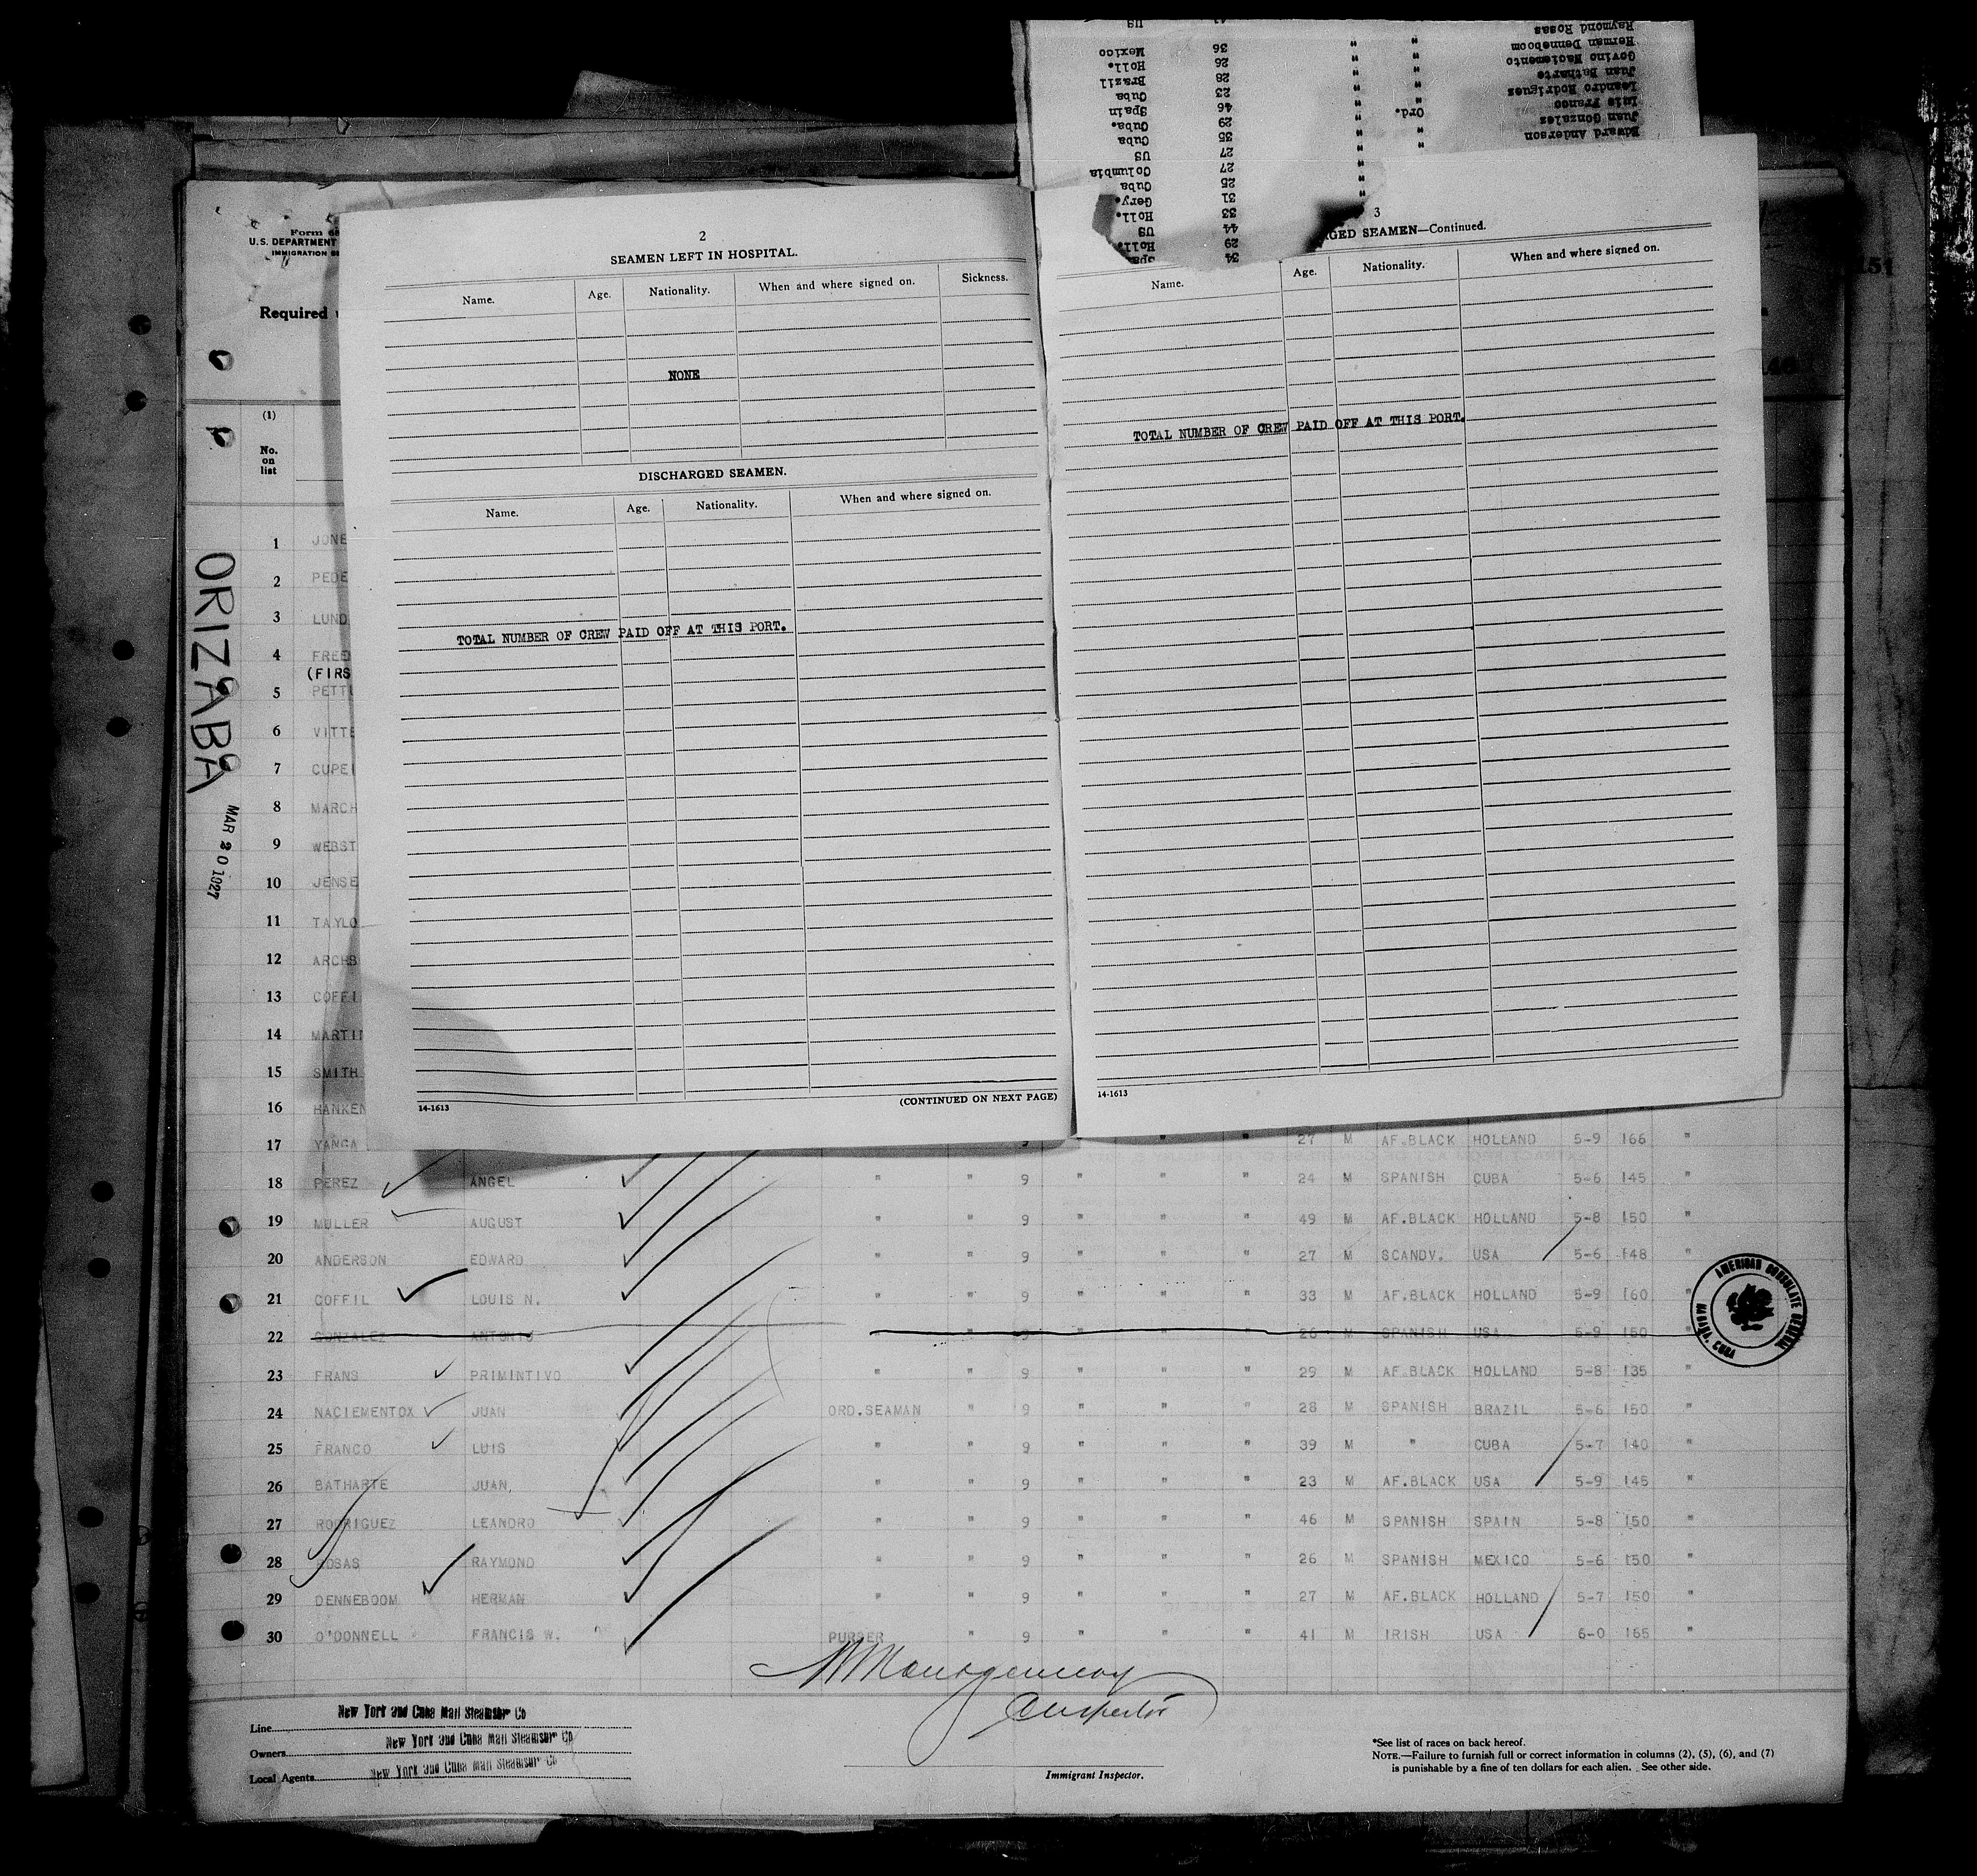 US
Mexico 36 " " Raymond Rosas
Holl. 26 " " Herman Denneboom
Brazil 28 " " Govino Naciemento
Cuba 23 " " Juan Batharte
Spain 46 " " Leandro Rodriguez
Cuba. 29 " Ord. Luis Franco
Cuba 35 " " Juan Gonzalez
US 27 " " Edward Anderson
Columbia 27 "
Cuba 25 "
Gery. 31 "
Holl. 33
US 44
Holl. 29
34
Form
U.S. DEPARTMENT
IMMIGRATION
Required
(1)
No. on list
ORIZABA
MAR 20 1927
151
2
SEAMEN LEFT IN HOSPITAL.
Name. Age. Nationality. When and where signed on. Sickness.
NONE
DISCHARGED SEAMEN.
Name. Age. Nationality. When and where signed on.
TOTAL NUMBER OF CREW PAID OFF AT THIS PORT.
14-1613 (CONTINUED ON NEXT PAGE)
3
RGED SEAMEN—Continued.
Name. Age. Nationality. When and where signed on.
TOTAL NUMBER OF CREW PAID OFF AT THIS PORT.
14-1613
1 JONE
2 PEDE
3 LUND
4 FREE
(FIRS
5 PETT
6 VITTE
7 CUPE
8 MARCH
9 WEBST
10 JENSE
11 TAYLO
12 ARCHB
13 COFFI
14 MARTI
15 SMITH
16 HANKEN
17 YANGA 9 " " " 27 M AF.BLACK HOLLAND 5-9 166 "
18 PEREZ ANGEL " " 9 " " " 24 M SPANISH CUBA 5-6 145 "
19 MULLER AUGUST " " 9 " " " 49 M AF.BLACK HOLLAND 5-8 150 "
20 ANDERSON EDWARD " " 9 " " " 27 M SCANDV. USA 5-6 148 "
21 COFFIL LOUIS N. " " 9 " " " 33 M AF.BLACK HOLLAND 5-9 160 "
22 GONZALEZ ANTONIO " 9 " " " 26 M SPANISH USA 5-9 150 "
23 FRANS PRIMINTIVO " " 9 " " " 29 M AF.BLACK HOLLAND 5-8 135 "
24 NACIEMENTOX JUAN ORD.SEAMAN " 9 " " " 28 M SPANISH BRAZIL 5-6 150 "
25 FRANCO LUIS " " 9 " " " 39 M " CUBA 5-7 140 "
26 BATHARTE JUAN, " " 9 " " " 23 M AF.BLACK USA 5-9 145 "
27 RODRIGUEZ LEANDRO " " 9 " " " 46 M SPANISH SPAIN 5-8 150 "
28 ROSAS RAYMOND " " 9 " " " 26 M SPANISH MEXICO 5-6 150 "
29 DENNEBOOM HERMAN " " 9 " " " 27 M AF.BLACK HOLLAND 5-7 150 "
30 O'DONNELL FRANCIS W. PURSER " 9 " " " 41 M IRISH USA 6-0 165 "
AMERICAN CONSULATE GENERAL
HAVANA, CUBA
Inspector
Line New York and Cuba Mail Steamship Co
Owners New York and Cuba Mail Steamship Co
Local Agents New York and Cuba Mail Steamship Co
Immigrant Inspector.
*See list of races on back hereof.
NOTE.—Failure to furnish full or correct information in columns (2), (5), (6), and (7)
is punishable by a fine of ten dollars for each alien. See other side.